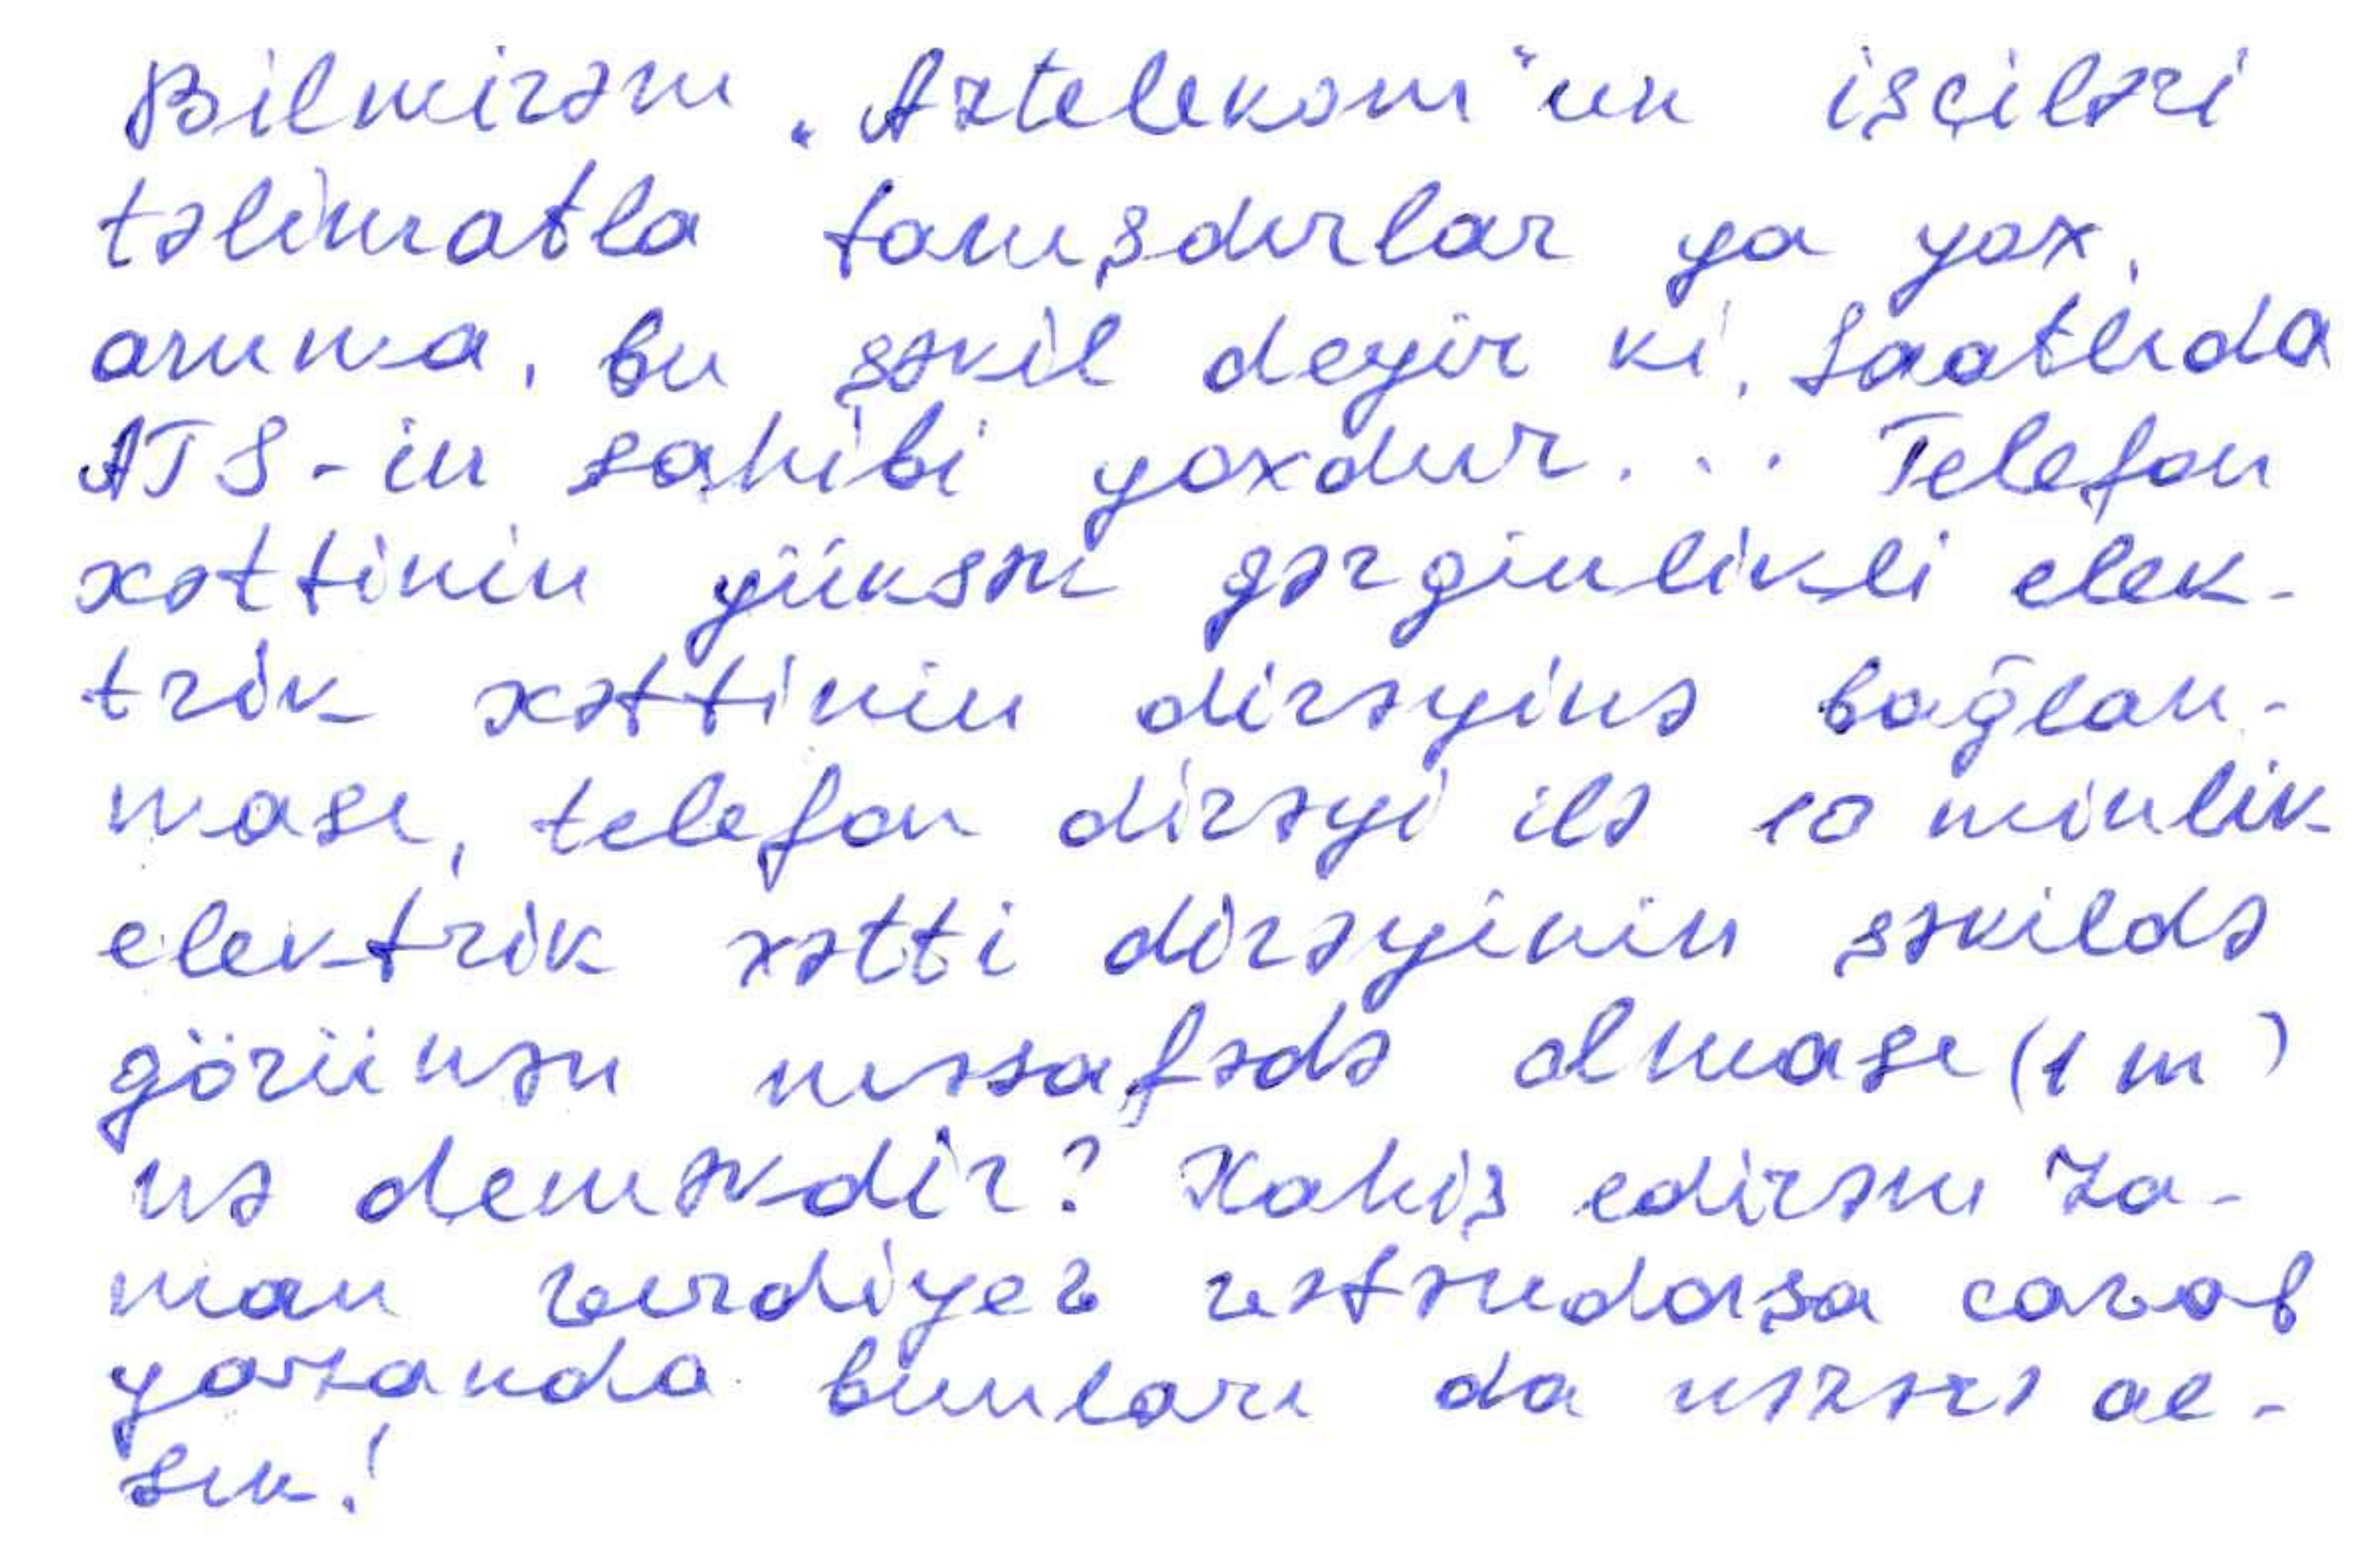 Bilmirəm „Aztelekom"un işçiləri
təlimatla tanışdırlar ya yox,
amma, bu şəkil deyir ki, Saatlıda
ATS-in sahibi yoxdur... Telefon
xəttinin yüksək gərginlikli elek-
trik xəttinin dirəyinə bağlan-
ması, telefon dirəyi ilə 10 minlik
elektrik xətti dirəyinin şəkildə
görünən məsafədə olması (1 m)
nə deməkdir? Xahiş edirəm Za-
man Verdiyev vətəndaşa cavab
yazanda bunları da nəzərə al-
sın!